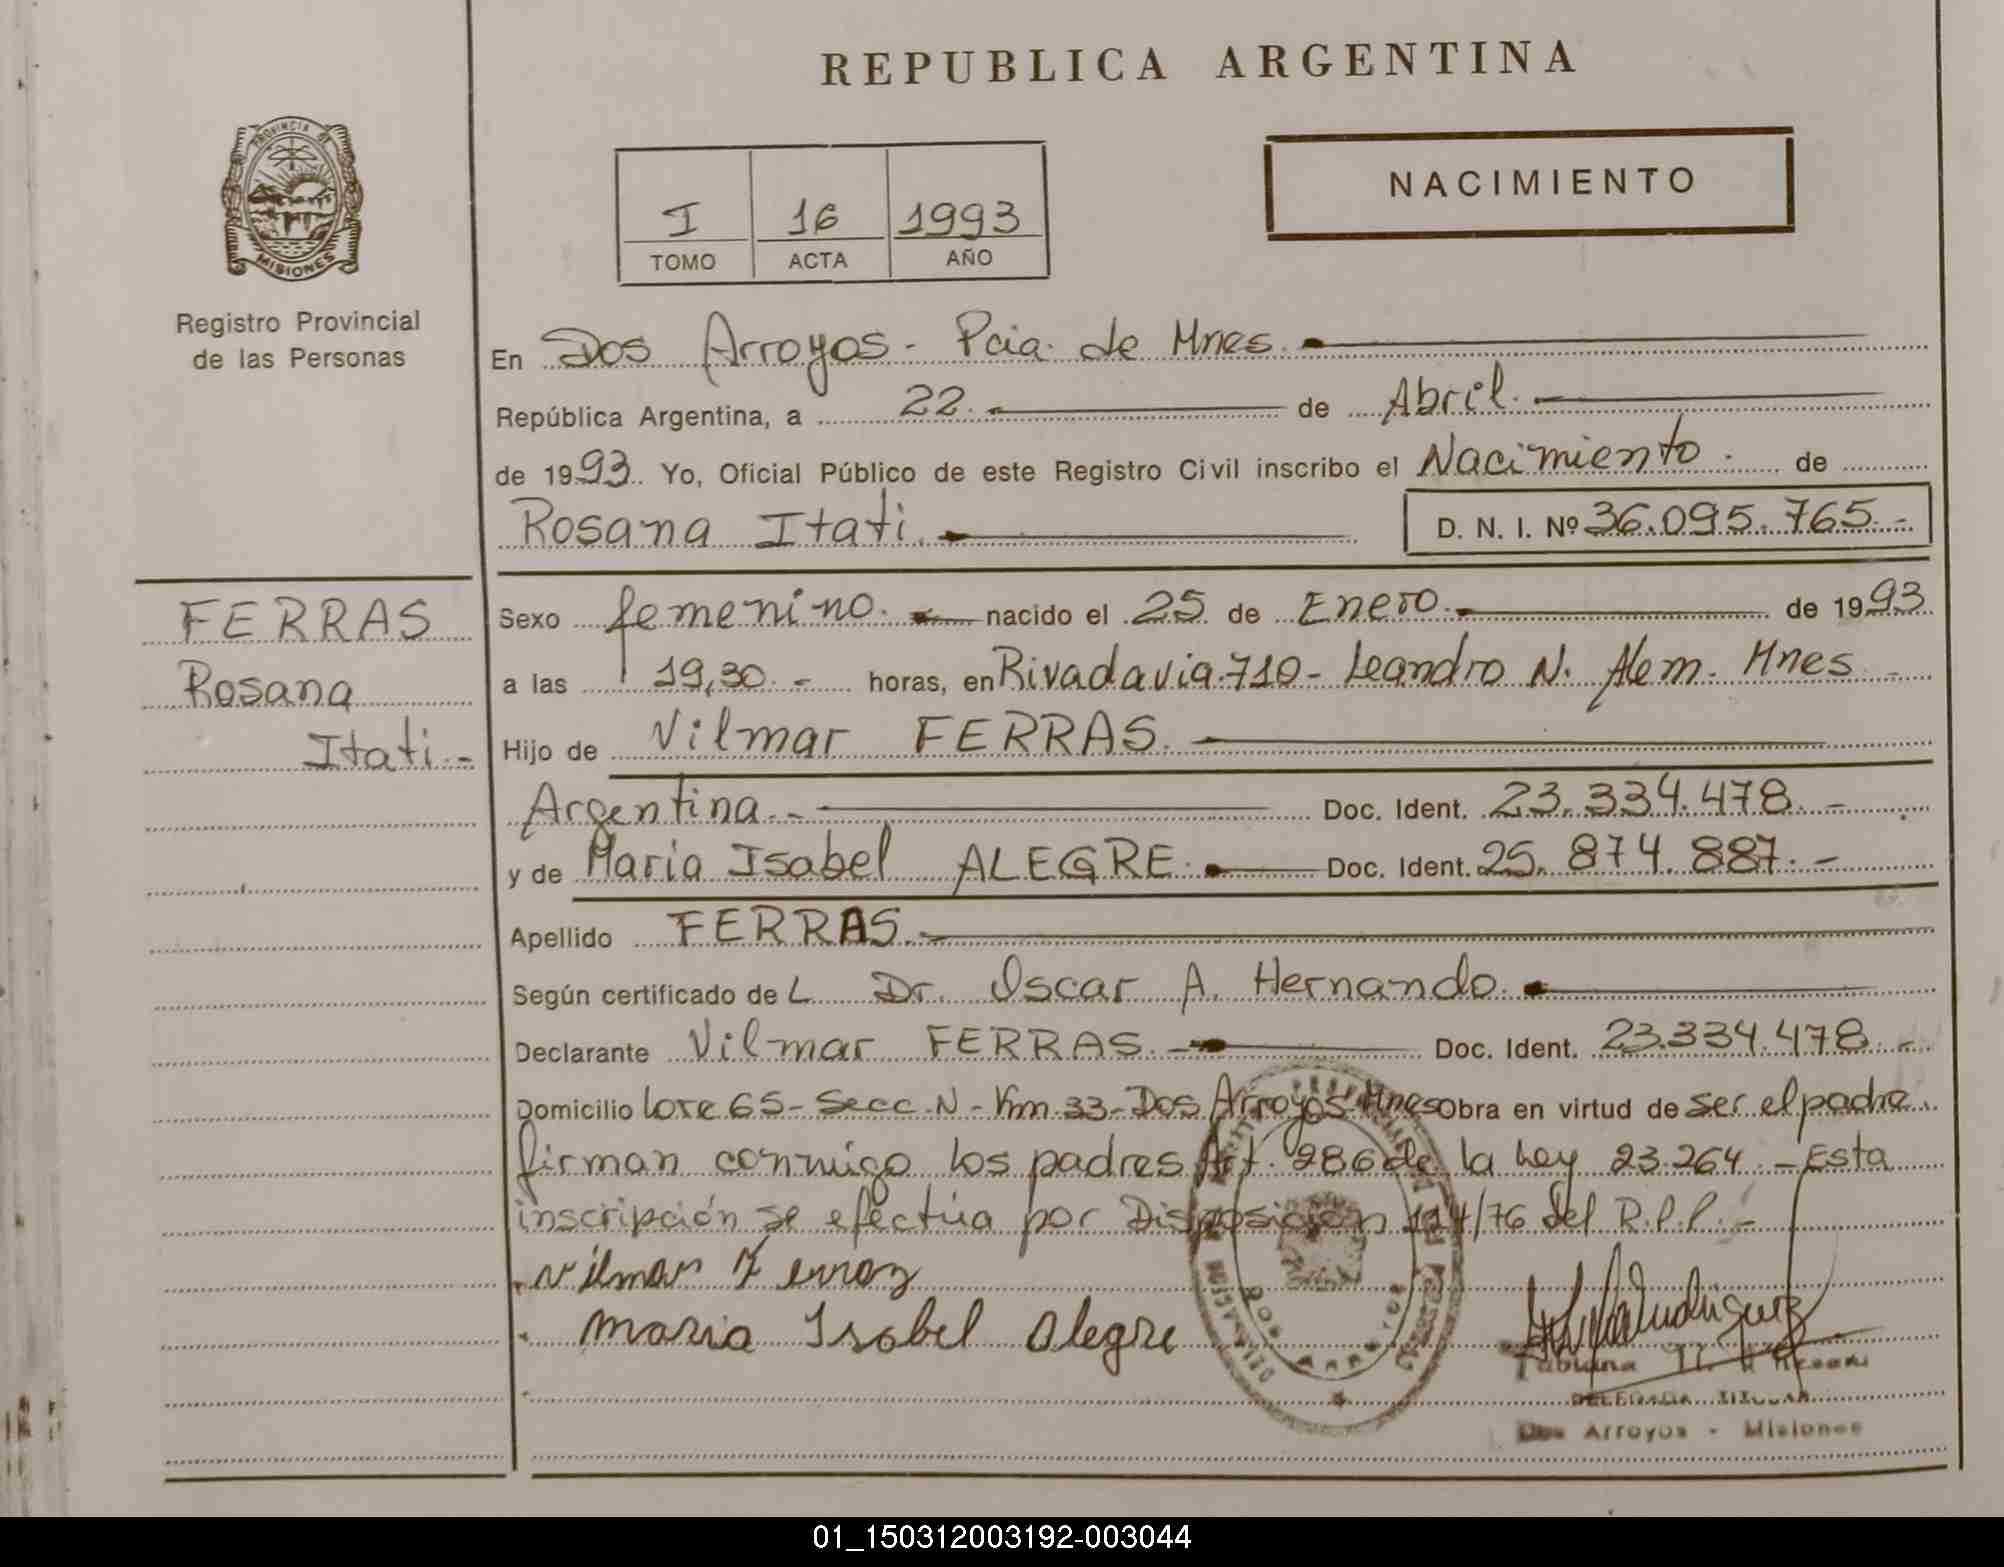 REPUBLICA ARGENTINA
PROVINCIA DE
MISIONES
Registro Provincial
de las Personas
NACIMIENTO
I 16 1993
TOMO ACTA AÑO
En Dos Arroyos - Pcia. de Mnes.
República Argentina, a 22. de Abril.
de 1993. Yo, Oficial Público de este Registro Civil inscribo el Nacimiento. de
Rosana Itati. D. N. I. Nº 36.095.765.-
FERRAS
Rosana
Itati.-
Sexo femenino. nacido el 25 de Enero. de 1993
a las 19,30.- horas, en Rivadavia 710 - Leandro N. Alem. Mnes -
Hijo de Vilmar FERRAS.
Argentina.- Doc. Ident. 23.334.478.-
y de Maria Isabel ALEGRE. Doc. Ident. 25.874.887.-
Apellido FERRAS.
Según certificado de L Dr. Oscar A. Hernando.
Declarante Vilmar FERRAS. Doc. Ident. 23.334.478.-
Domicilio Lote 65 - Secc. N - Km 33 - Dos Arroyos Mnes Obra en virtud de ser el padre.
firman conmigo los padres Art. 286 de la Ley 23.264.- Esta
inscripción se efectúa por Disposición 124/76 del R.P.P.-
Vilmar Ferraz
Maria Isabel Alegre
DOS ARROYOS
Fabiana
DELEGADA TITULAR
Dos Arroyos - Misiones
01_150312003192-003044